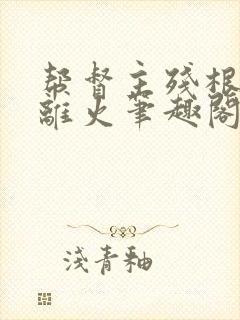 帮督主残根
离火笔趣阁
浅青釉